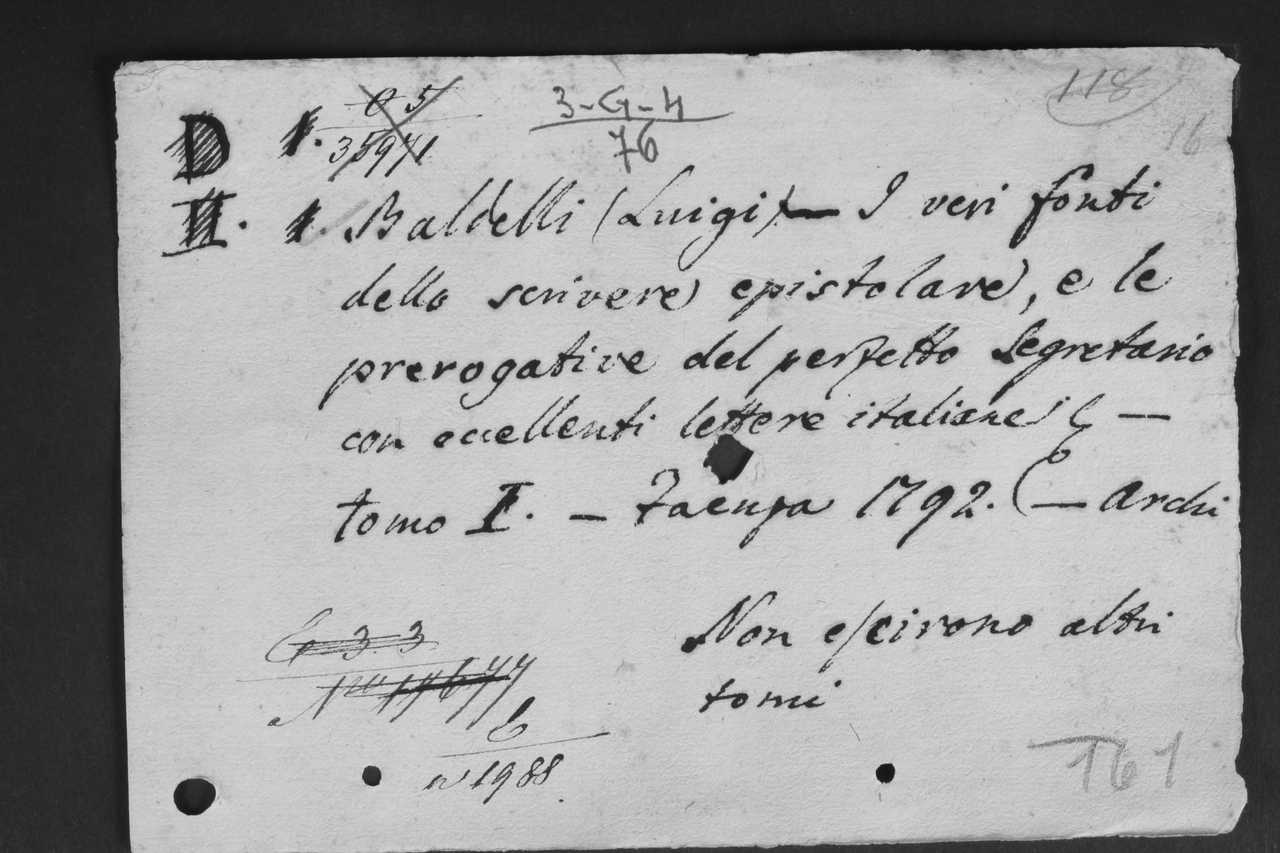 D 1. O 5 3-G-4 118
35971 76 16
II. 1. Baldelli (Luigi) — I veri fonti
dello scrivere epistolare, e le
prerogative del perfetto Segretario
con eccellenti lettere italiane &c —
tomo I. — Faenza 1792. (— Archi
G 3 3 Non escirono altri
tomi
n° 1988.
161